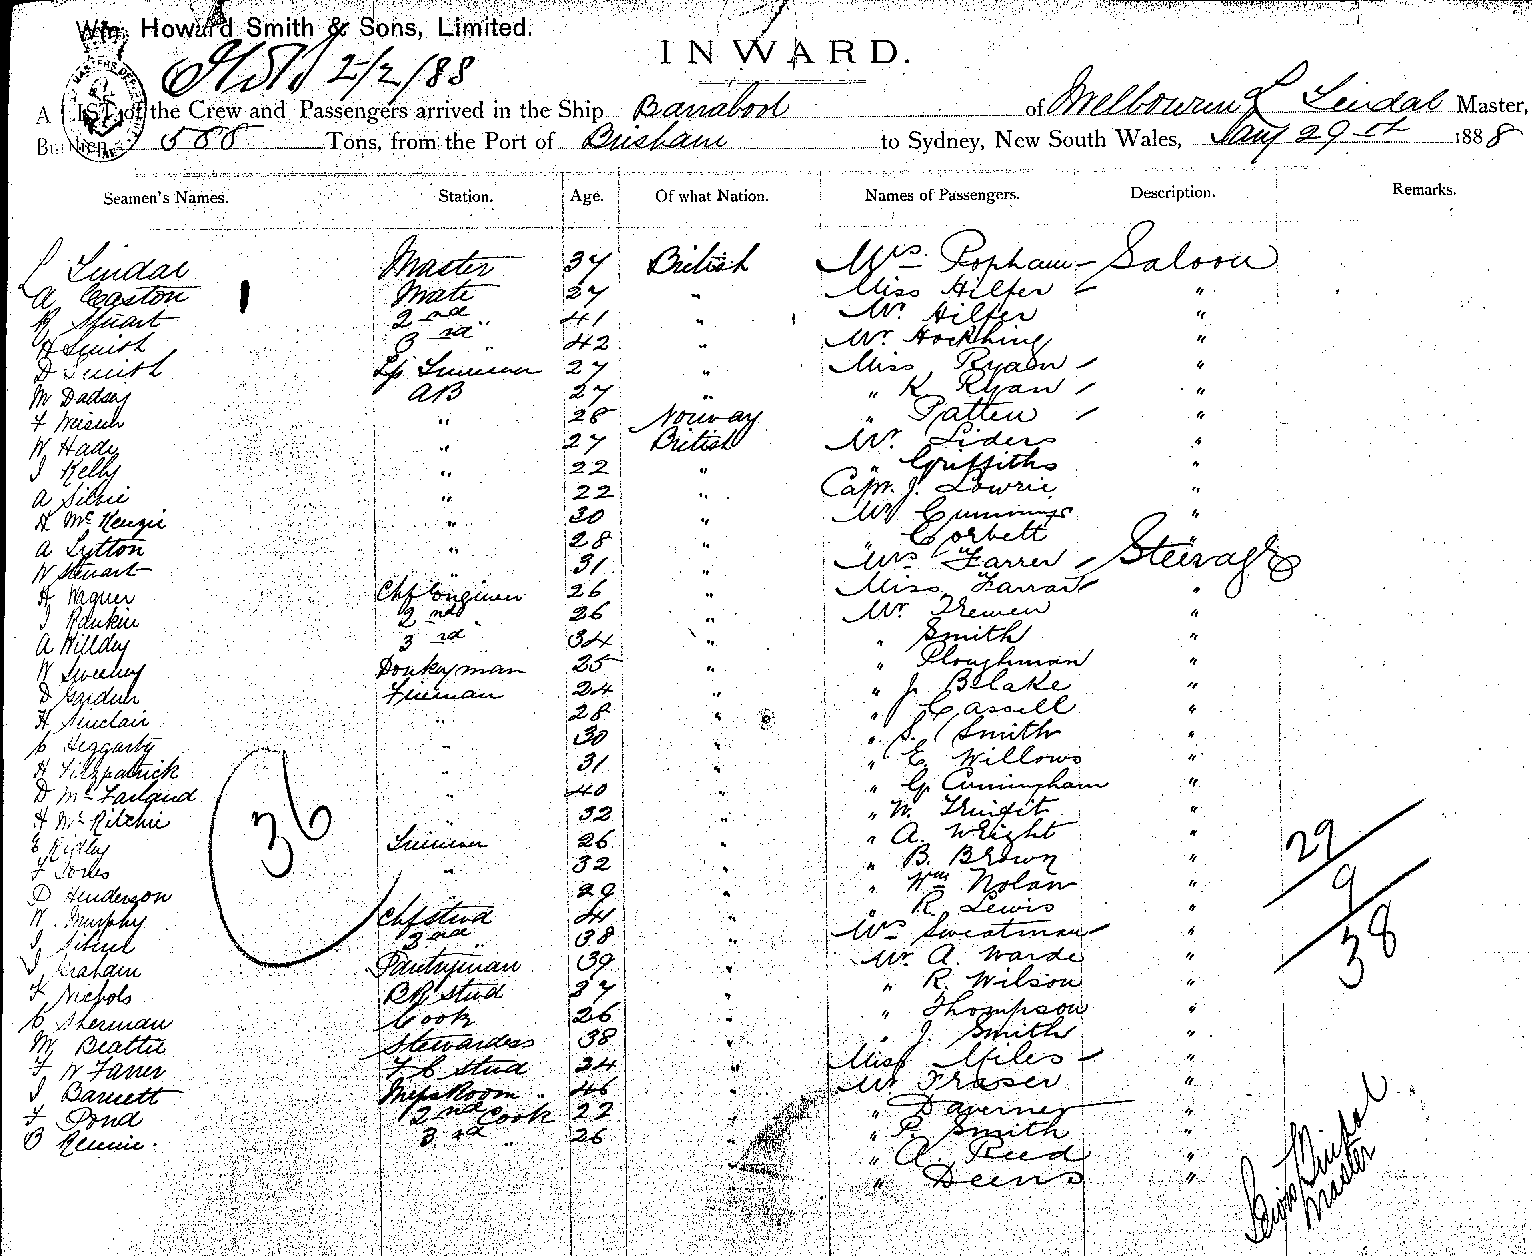 Wm. Howard Smith & Sons, Limited.
2/2/88
INWARD.
A LIST of the Crew and Passengers arrived in the Ship Barrabool of Melbourne L Lindal Master,
Burthen 588 Tons, from the Port of Brisbane to Sydney, New South Wales, Jany 29 1888
Seamen's Names. Station. Age. Of what Nation. Names of Passengers. Description. Remarks.
L Lindal Master 37 British Mrs Popham Saloon
A Easton Mate 27 " Miss Hilfer "
R Stuart 2nd " 41 " Mr Hilfer "
H Smith 3rd " 42 " Mr Hockking "
D Smith Lp Trimmer 27 " Miss Ryan "
M Dadsey AB 27 " " K Ryan "
F " 28 Norway " Patten "
W Hady " 27 British Mr Liders "
J Kelly " 22 " " Griffiths "
A Silvie " 22 " Capn. J. Lowrie "
H McKenzie " 30 " Mr Cummings "
A Lytton " 28 " " Corbett "
W Stewart " 31 " Mrs Farrer Steerage
H Wagner Chf Engineer 26 " Miss Farrar "
J Rankin 2nd " 26 " Mr Tremen "
A Willdey 3rd " 34 " " Smith "
W Sweeney Donkeyman 25 " " Ploughman "
D Gardner Fireman 24 " " J. Blake "
H Sinclair " 28 " " J Cassell "
C Heggarty " 30 " " S. Smith "
H Fitzpatrick " 31 " " E Willows "
D McFarland " 40 " " G. Cuningham "
H McRitchie " 32 " " W. "
E Ridley Trimmer 26 " " A. Wright "
F Jones " 32 " " B. Brown "
D Henderson " 29 " " Wm Nolan "
W. Murphy Chf stud 44 " " R. Lewis "
J. 2nd " 38 " Mrs Sweatman "
J Graham Pantryman 39 " Mr A. Warde "
F Nichols BR Stud 27 " " R. Wilson "
C Sherman Cook 26 " " Thompson "
M Beattie Stewardess 38 " " J. Smith "
F W Farrer F C Stud 24 " Miss Miles "
J Barnett MessRoom " 46 " Mr Fraser "
F Pond 2nd Cook 22 " " Daverner "
B Rennie 3rd " 26 " " P. Smith "
" A. Reed "
" Deens "
36
29
9
38
Lewis Lindal
Master